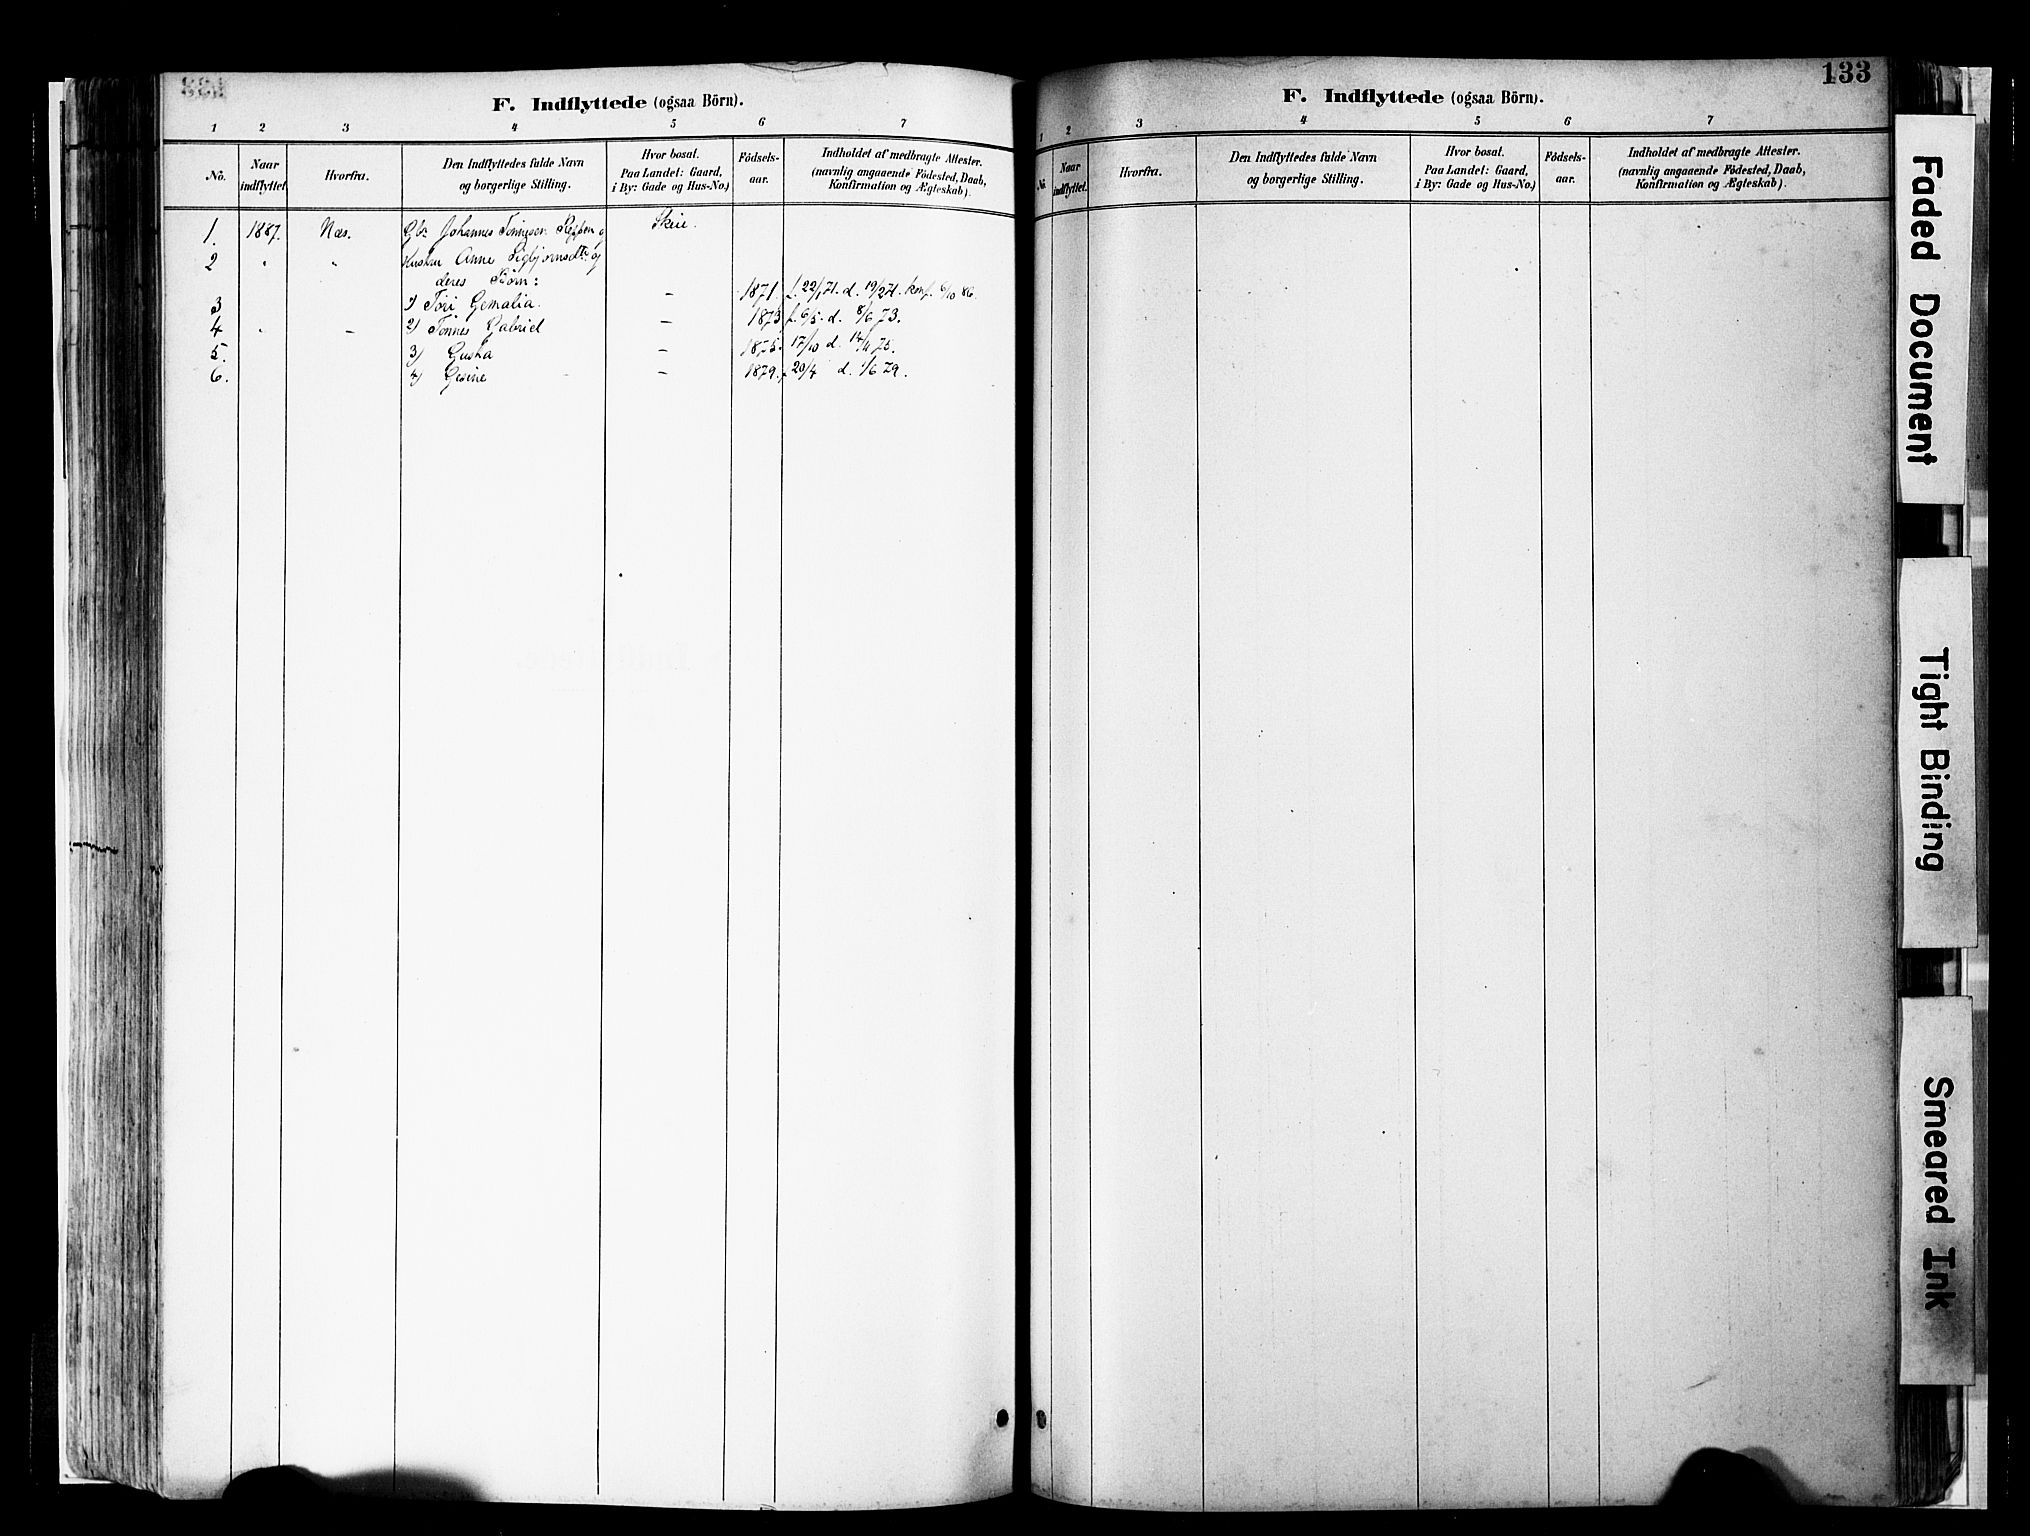 F. Indflyttede (ogsaa Börn).
1 2 3 4 5 6 7
No. Naar indflyttet. Hvorfra. Den Indflyttedes fulde Navn og borgerlige Stilling. Hvor bosat. Paa Landet: Gaard, i By: Gade og Hus-No.) Födsels-aar. Indholdet af medbragte Attester. (navnlig angaaende Födested, Daab, Konfirmation og Ægteskab).
1. 1887. Næs. Gbr. Johannes Tønnesen og Skeie.
2 " " Hustru Anne Sigbjørnsdtr. og
deres Børn:
3 1) Tøri Gemalia. – 1871. f. 22/1 71. d. 19/2 71. konf. 6/10 86.
4 " – 2) Tønnes Gabriel – 1873 f. 6/5. d. 8/6 73.
5. 3) – 1875. 17/10 d. 14/11 75.
6. 4) Gesine – 1879. f. 20/4 d. 1/6 79.
133
F. Indflyttede (ogsaa Börn).
1 2 3 4 5 6 7
No. Naar indflyttet. Hvorfra. Den Indflyttedes fulde Navn og borgerlige Stilling. Hvor bosat. Paa Landet: Gaard, i By: Gade og Hus-No.) Födsels-aar. Indholdet af medbragte Attester. (navnlig angaaende Födested, Daab, Konfirmation og Ægteskab).
Faded Document
Tight Binding
Smeared Ink